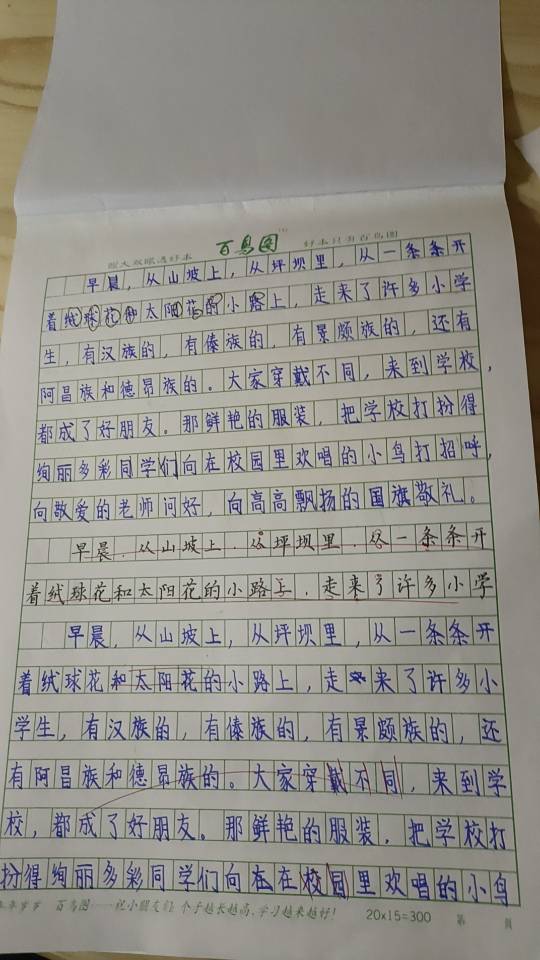 百鸟图
好本只有百鸟图
早晨，从山坡上，从坪坝里，从一条条开
着绒球花和太阳花的小路上，走来了许多小学
生，有汉族的，有傣族的，有景颇族的，还有
阿昌族和德昂族的。大家穿戴不同，来到学校，
都成了好朋友。那鲜艳的服装，把学校打扮得
绚丽多彩同学们向在校园里欢唱的小鸟打招呼，
向敬爱的老师问好，向高高飘扬的国旗敬礼。
早晨，从山坡上，从坪坝里，从一条条开
着绒球花和太阳花的小路上，走来了许多小学
早晨，从山坡上，从坪坝里，从一条条开
着绒球花和太阳花的小路上，走来了许多小
学生，有汉族的，有傣族的，有景颇族的，还
有阿昌族和德昂族的。大家穿戴不同，来到学
校，都成了好朋友。那鲜艳的服装，把学校打
扮得绚丽多彩同学们向在在校园里欢唱的小鸟
百鸟图——祝小朋友们：个子越长越高，学习越来越好！ 20×15=300 第 页